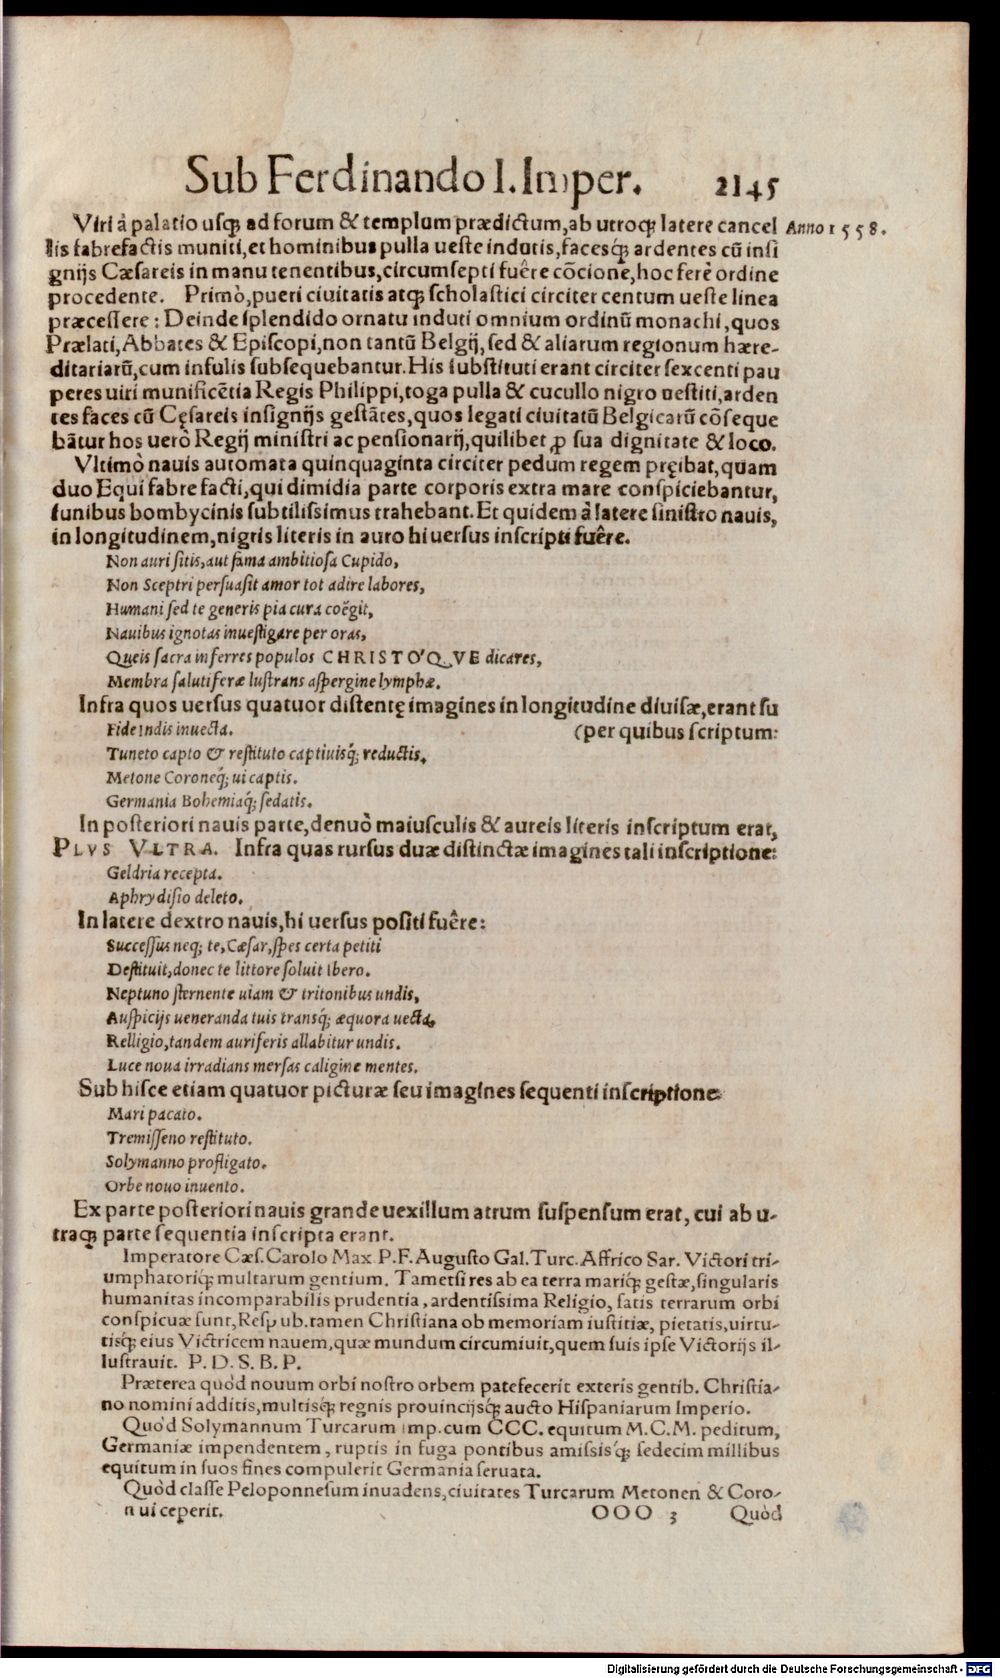 Sub Ferdinando I. Imper. 2145
Viri à palatio usq; ad forum & templum prædictum, ab utroq; latere cancel Anno 1558.
lis fabrefactis muniti, et hominibus pulla ueste indutis, facesq́; ardentes cũ insi
gnijs Cæsareis in manu tenentibus, circumsepti fuêre cōcione, hoc ferè ordine
procedente. Primò, pueri ciuitatis atq; scholastici circiter centum ueste linea
præcessere: Deinde splendido ornatu induti omnium ordinũ monachi, quos
Prælati, Abbates & Episcopi, non tantũ Belgij, sed & aliarum regionum hære-
ditariarũ, cum infulis subsequebantur. His substituti erant circiter sexcenti pau
peres uiri munificẽtia Regis Philippi, toga pulla & cucullo nigro uestiti, arden
tes faces cũ Cęsareis insignijs gestãtes, quos legati ciuitatũ Belgicarũ cõseque
bãtur hos uerò Regij ministri ac pensionarij, quilibet ꝓ sua dignitate & loco.
Vltimò nauis automata quinquaginta circiter pedum regem pręibat, quam
duo Equi fabrefacti, qui dimidia parte corporis extra mare conspiciebantur,
funibus bombycinis subtilissimus trahebant. Et quidem à latere sinistro nauis,
in longitudinem, nigris literis in auro hi uersus inscripti fuêre.
Non auri sitis, aut fama ambitiosa Cupido,
Non Sceptri persuasit amor tot adire labores,
Humani sed te generis pia cura coëgit,
Nauibus ignotas inuestigare per oras,
Queis sacra inferres populos CHRISTO'QVE dicares,
Membra salutiferæ lustrans aspergine lymphæ.
Infra quos uersus quatuor distentę imagines in longitudine diuisæ, erant su
Fide Indis inuecta. (per quibus scriptum:
Tuneto capto & restituto captiuisq́; reductis.
Metone Coroneq́; ui captis.
Germania Bohemiaq́; sedatis.
In posteriori nauis parte, denuò maiusculis & aureis literis inscriptum erat,
PLVS VLTRA. Infra quas rursus duæ distinctæ imagines tali inscriptione:
Geldria recepta.
Aphrydisio deleto.
In latere dextro nauis, hi uersus positi fuêre:
Successus neq; te, Cæsar, spes certa petiti
Destituit, donec te littore soluit Ibero.
Neptuno sternente uiam & tritonibus undis,
Auspicijs ueneranda tuis transq́; æquora uecta,
Relligio, tandem auriferis allabitur undis.
Luce noua irradians mersas caligine mentes.
Sub hisce etiam quatuor picturæ seu imagines sequenti inscriptione
Mari pacato.
Tremisseno restituto.
Solymanno profligato.
Orbe nouo inuento.
Ex parte posteriori nauis grande uexillum atrum suspensum erat, cui ab u-
traq; parte sequentia inscripta erant.
Imperatore Cæs. Carolo Max P. F. Augusto Gal. Turc. Affrico Sar. Victori tri-
umphatoriq́; multarum gentium. Tametsi res ab ea terra mariq́; gestæ, singularis
humanitas incomparabilis prudentia, ardentissima Religio, satis terrarum orbi
conspicuæ sunt, Respub. tamen Christiana ob memoriam iustitiæ, pietatis, uirtu-
tisq́; eius Victricem nauem, quæ mundum circumiuit, quem suis ipse Victorijs il-
lustrauit. P. D. S. B. P.
Præterea quòd nouum orbi nostro orbem patefecerit exteris gentib. Christia-
no nomini additis, multisq́; regnis prouincijsq́; aucto Hispaniarum Imperio.
Quòd Solymannum Turcarum Imp. cum CCC. equitum M.C.M. peditum,
Germaniæ impendentem, ruptis in fuga pontibus amissisq́; sedecim millibus
equitum in suos fines compulerit Germania seruata.
Quòd classe Peloponnesum inuadens, ciuitates Turcarum Metonen & Coro-
n ui ceperit. OOO 3 Quòd
Digitalisierung gefördert durch die Deutsche Forschungsgemeinschaft - DFG